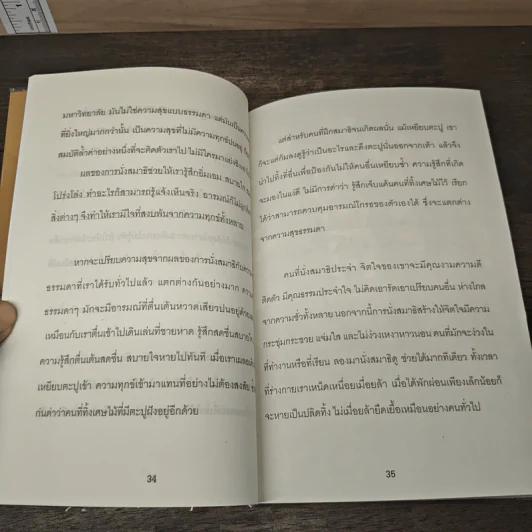 มหาวิทยาลัย มันไม่ใช่ความสุขแบบธรรมดา แต่มันเป็น
ที่ยิ่งใหญ่มากกว่านั้น เป็นความสุขที่ไม่มีความทุกข์ปน
สมบัติล้ำค่าอย่างหนึ่งที่จะติดตัวเราไป ไม่มีใครมาแย่ง
ผลของการนั่งสมาธิช่วยให้เรารู้สึกอิ่มเอม สบายใจ
โปร่งโล่ง ทำอะไรก็สามารถรู้แจ้งเห็นจริง อารมณ์ก็ไม่
สิ่งต่างๆ จึงทำให้เรามีใจที่สงบพ้นจากความทุกข์ทั้งหลาย
หากจะเปรียบความสุขจากผลของการนั่งสมาธิกับความ
ธรรมดาที่เราได้รับทั่วไปแล้ว แตกต่างกันอย่างมาก
ธรรมดาๆ มักจะมีอารมณ์ที่ตื่นเต้นหวาดเสียวปนอยู่ด้วย
เหมือนกับเราตื่นเช้าไปเดินเล่นที่ชายหาด รู้สึกสดชื่นสบาย
ความรู้สึกตื่นเต้นสดชื่น สบายใจหายไปทันที เมื่อเราเผลอ
เหยียบตะปูเข้า ความทุกข์เข้ามาแทนที่อย่างไม่ต้องสงสัย
กันด่าว่าคนที่ทิ้งเศษไม้ที่มีตะปูฝังอยู่อีกด้วย
34
แต่สำหรับคนที่ฝึกสมาธิจนเกิดผลนั้น แม้เหยียบตะปู เขา
ก็จะแค่ก้มลงดูรู้ว่าเป็นอะไรและดึงตะปูนั้นออกจากเท้า แล้วจึง
นำไปทิ้งที่อื่นเพื่อป้องกันไม่ให้คนอื่นเหยียบซ้ำ ความรู้สึกที่เกิด
จะมองในแง่ดี ไม่มีการด่าว่า รู้สึกเจ็บแค้นคนที่ทิ้งเศษไม้ไว้ เรียก
ได้ว่าสามารถควบคุมอารมณ์โกรธของตัวเองได้ ซึ่งจะแตกต่าง
จากความสุขธรรมดา
คนที่นั่งสมาธิประจำ จิตใจของเขาจะมีคุณงามความดี
ติดตัว มีคุณธรรมประจำใจ ไม่คิดเอารัดเอาเปรียบคนอื่น ห่างไกล
จากความชั่วทั้งหลาย นอกจากนี้การนั่งสมาธิสร้างให้จิตใจมีความ
กระชุ่มกระชวย แจ่มใส และไม่ง่วงเหงาหาวนอน คนที่มักจะง่วงใน
ที่ทำงานหรือที่เรียน ลองมานั่งสมาธิดู ช่วยได้มากทีเดียว ทั้งเวลา
ที่ร่างกายเราเหน็ดเหนื่อยเมื่อยล้า เมื่อได้พักผ่อนเพียงเล็กน้อยก็
จะหายเป็นปลิดทิ้ง ไม่เมื่อยล้ายืดเยื้อเหมือนอย่างคนทั่วไป
35